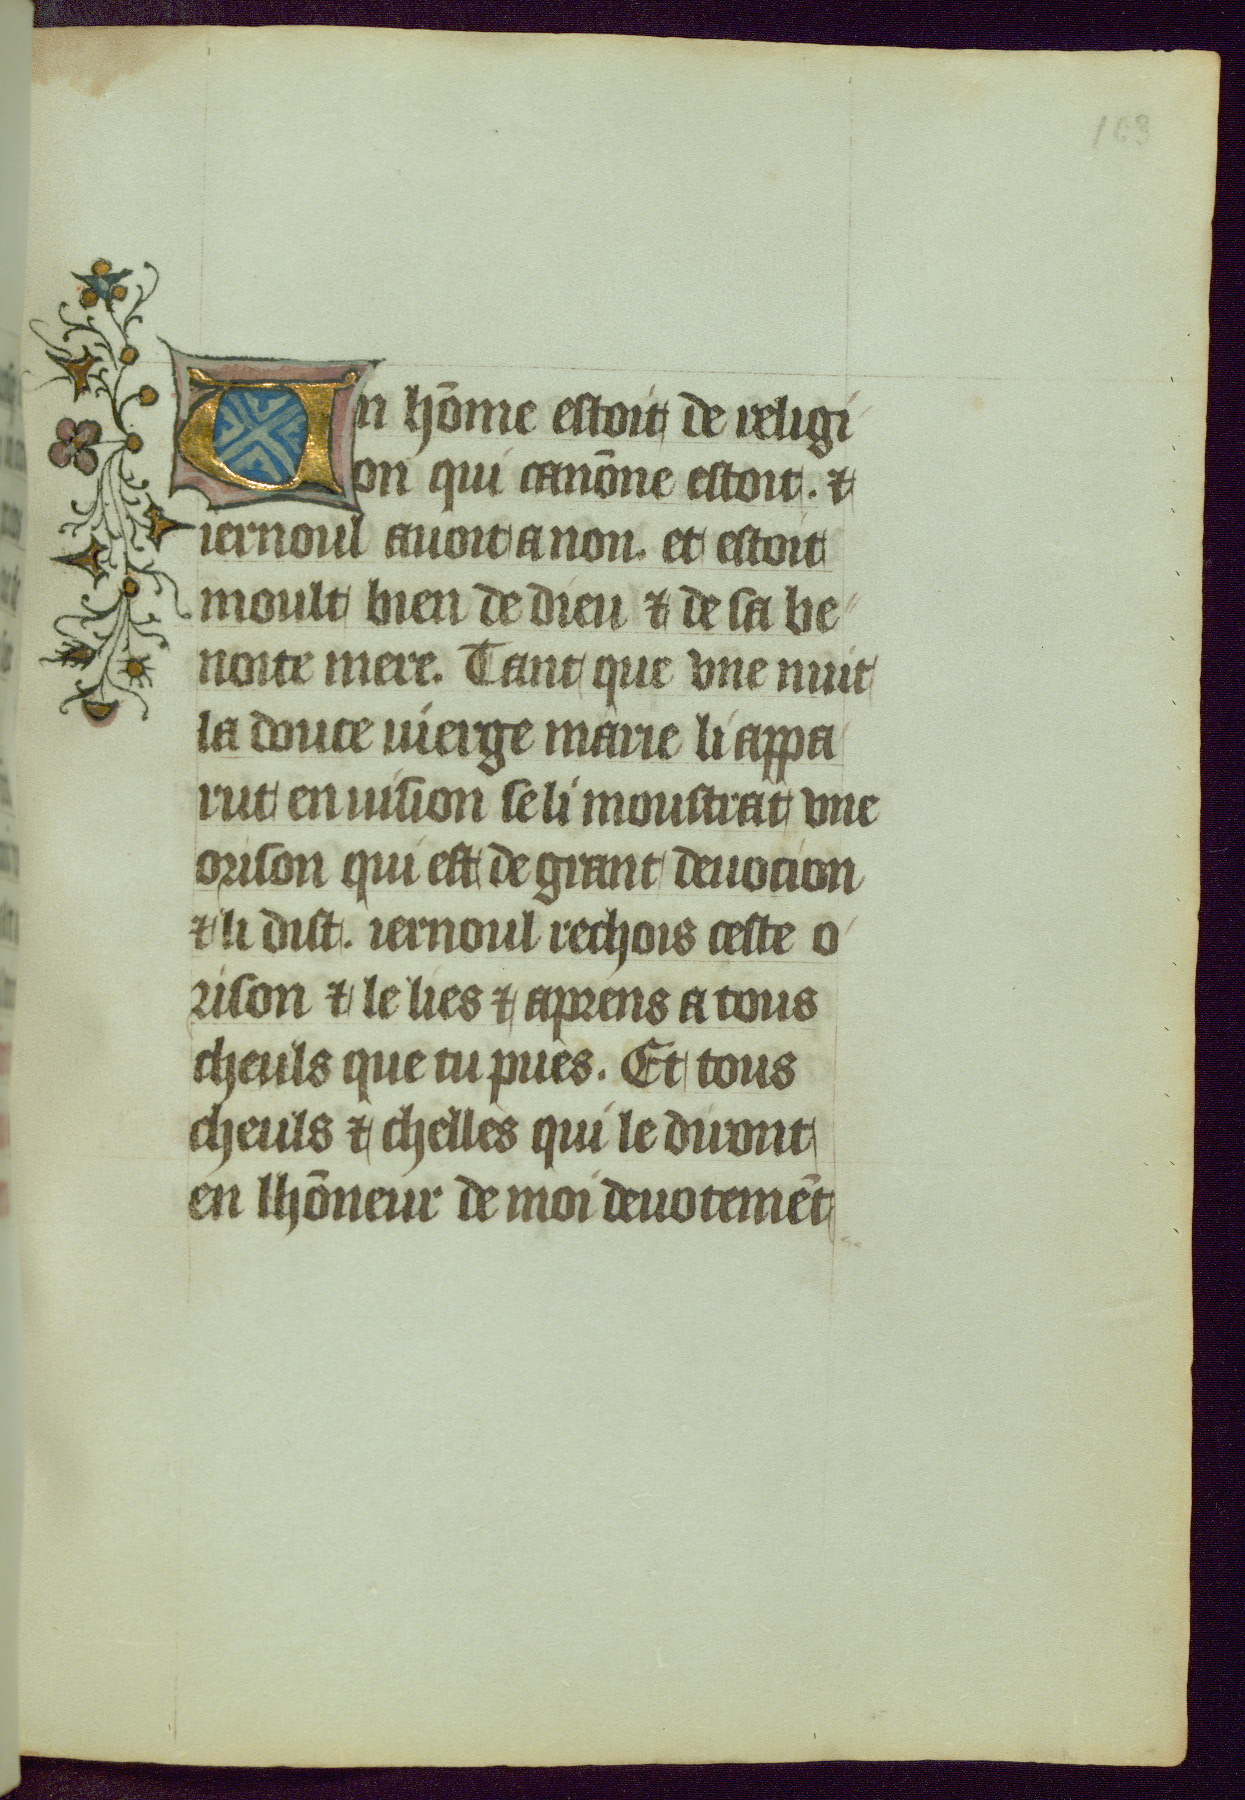 163
Un hōme estoit de religi
on qui canōne estoit. ⁊
iernoul auoit a non. et estoit
moult bien de dieu ⁊ de sa be
noite mere. Tant que vne nuit
la douce uierge marie li appa
rut en uision se li moustrat vne
orison qui est de grant deuocion
⁊ li dist. iernoul rechois ceste o
rison ⁊ le lies ⁊ aprens a tous
cheuls que tu pues. Et tous
cheuls ⁊ chelles qui le diront
en lhōneur de moi deuotemēt